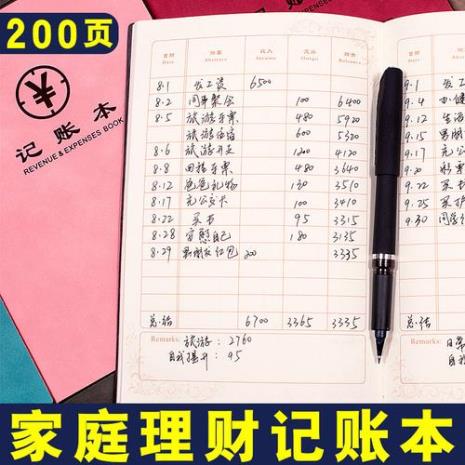 200页
记账本
REVENUE & EXPENSES BOOK
日期 收入 支出
Date Income Balance
8.1 发工资 6500
8.2 同事聚会 100 6400
8.5 旅游车票 480 5920
旅游住宿 600 5320
8.6 旅游开支 1200 4120
8.8 回程车票 480 3640
8.12 爸爸礼物 130 3510
8.17 充公交卡 100 3410
8.22 买书 95 3315
8.28 慰自己 180 3135
8.29 男朋友红包 200 3335
总结 6700 3365 3335
Remarks: 旅游: 2760
自我提升: 95
9.1
9.4
9.12 生活
9.22 买
9.25 买护
9.30 同学
总结
日常
自我
家庭理财记账本